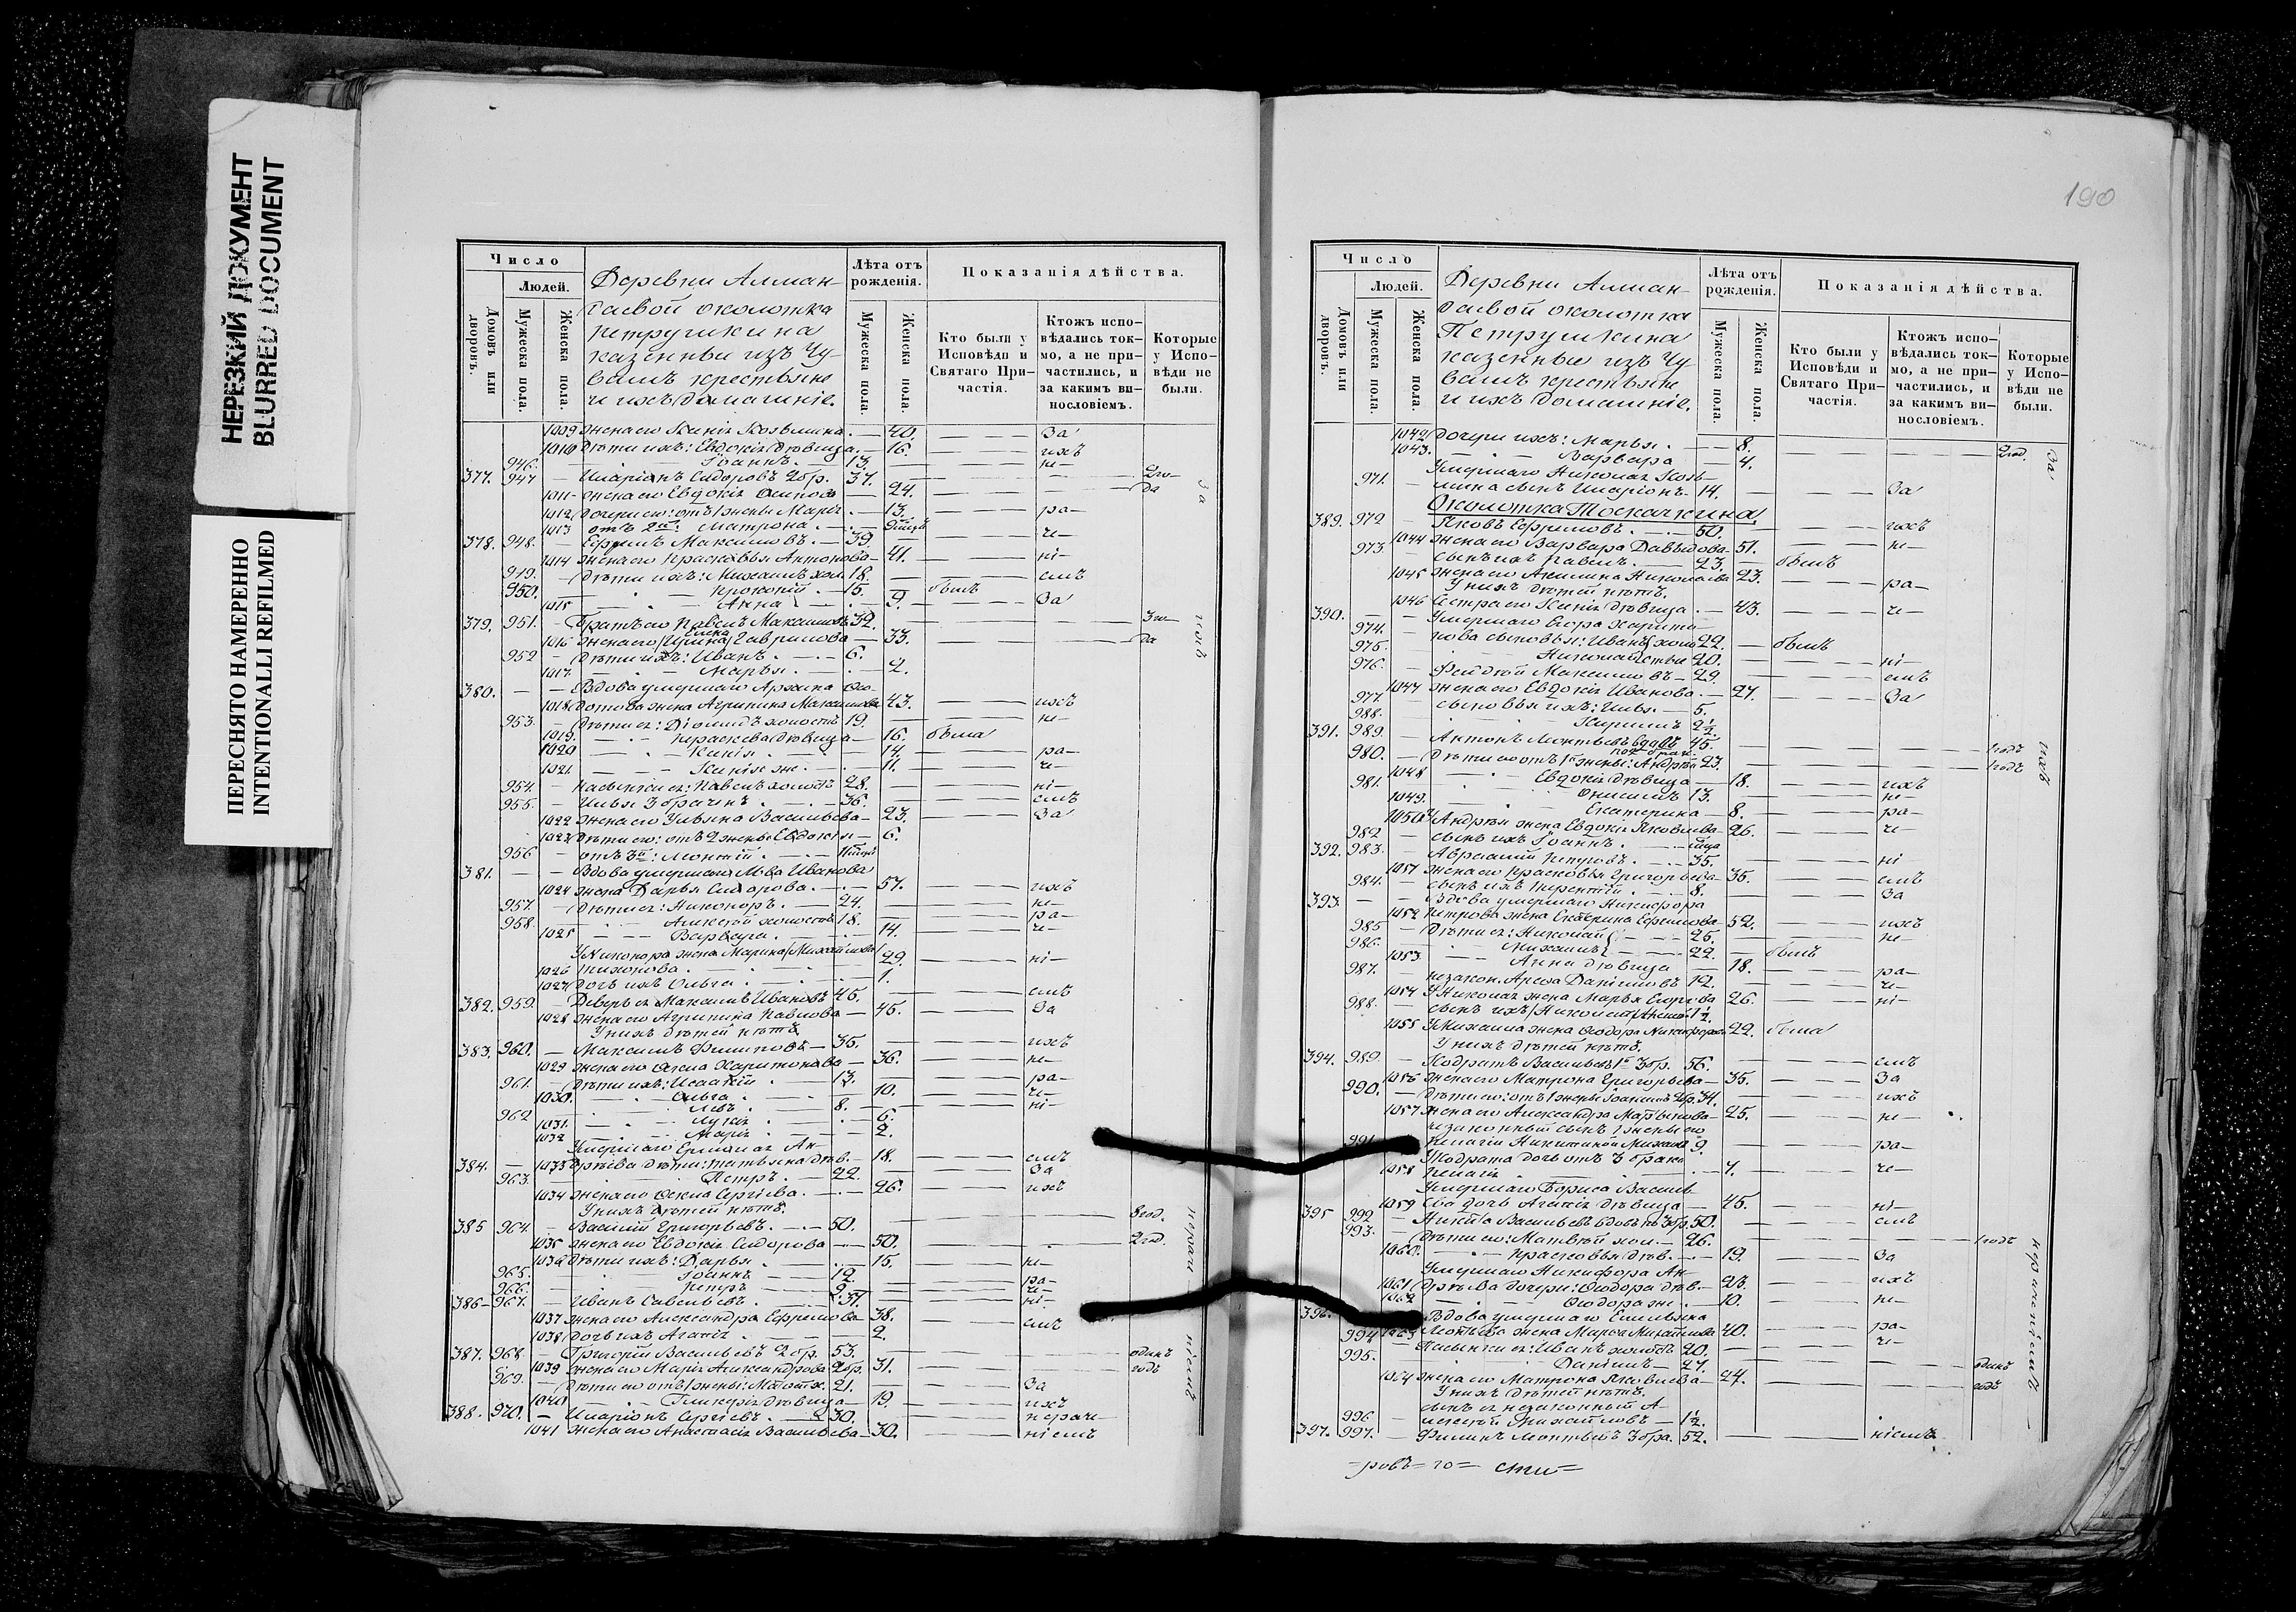 НЕРЕЗКИЙ ДОКУМЕНТ
BLURRED DOCUMENT
ПЕРЕСНЯТО НАМЕРЕННО
INTENTIONALLI REFILMED
Число
Людей.
Домовъ или дворовъ.
Мужеска пола.
Женска пола.
Деревни Алман-
даевой околотка
Петрушкина
казенные изъ Чу-
вашъ крестьяне
и ихъ домашніе.
Лѣта отъ рожденія.
Мужеска пола.
Женска пола.
Показанія дѣйства.
Кто были у Исповѣди и Святаго При-частія.
Ктожъ испо-вѣдались ток-мо, а не при-частились, и за какимъ ви-нословіемъ.
Которые у Испо-вѣди не были.
1009 жена его Ксенія Козьмина. 40. За
1010 Дѣти ихъ: Евдокія дѣвица. 16. ихъ
946. Іоаннъ. 13. не-
377. 947 Иларіонъ Сидоровъ 2 бр. 37. 2го-
1011 жена его Евдокія Осипова 24. да
1012 дочери его: отъ 1 жены Марія 13. ра-
1013 отъ 2й: Матрона.
378. 948. Ефремъ Максимовъ. 39. че-
1014 жена его Прасковья Антонова 41. ні-
949. Дѣти ихъ: Михаилъ хол 18. емъ
950. Прокопій. 15. былъ
1015 Анна 9. За
379. 951. Братъ его Павелъ Максимовъ 32. 3го-
1016 жена его Гаврилова 33. да
952 Дѣти ихъ: Иванъ. 6.
1017. Марья. 2.
380. Вдова умершаго Архипа Ѳео-
1018 дотова жена Агрипина Максимова 43. ихъ
953. Дѣти ея: Діомидъ холостъ 19. не-
1019. Праскева дѣвица 16. была
1020 Ксенія. 14. ра-
1021. Ксенія же. 11. че-
954. Пасынки ея: Павелъ холостъ 28. ні-
955. Илья 3 брачень 36. емъ
1022 жена его Ульяна Васильева 23. За
1023 Дѣти его: отъ 2 жены Евдокія 6.
956 отъ 3й: Леонтій.
381. Вдова умершаго Льва Иванова
1024 жена Дарья Сидорова. 57. ихъ
957. Дѣти ея: Никоноръ. 24. не-
958. Алексѣй холостъ 18. ра-
1025 Варвара. 14. че-
У Никонора жена Марина Михайлова
1026 29. ні-
1027 дочь ихъ Ольга. 1.
382. 959. Деверь ея Максимъ Ивановъ 45. емъ
1028 жена его Агрипина Павлова 45. За
У нихъ дѣтей нѣтъ.
383. 960. Максимъ Филиповъ 35. ихъ
1029 жена его Ѳекла Харитонова 36. не-
961. Дѣти ихъ: Исаакій. 13. ра-
1030. Ольга 10. че-
962 Левъ 8. ні-
1031. Лукія 6.
1032 Марія 2.
Умершаго Ермолая Ан-
384. 1033 дреева дѣти: Татьяна дѣв. 18. емъ
963. Петръ. 22. За
1034 жена его Ѳекла Сергѣева. 26. ихъ
У нихъ дѣтей нѣтъ.
385 964. Василій Григорьевъ. 50. 8год.
1035 жена его Евдокія Сидорова 50. 2год.
1036 Дѣти ихъ: Дарья 15. не-
965. Іоаннъ 12. ра-
966. Петръ 9. че-
386 967. Иванъ Савельевъ 37. ні-
1037 жена его Александра Ефремова 38. емъ
1038 дочь ихъ Агапія 2.
387. 968. Григорій Васильевъ 2 бр. 53. одинъ
1039 жена его Марія Александрова 2 бр. 31. годъ
969. Дѣти его отъ 1 жены: 21. За
1040 Гликерія дѣвица 19. ихъ
388. 970. Иларіонъ Сергѣевъ 30. нераче-
1041 жена его Анастасія Васильева 30. ніемъ
За
ихъ
нераче-
ніемъ
190
Число
Людей.
Домовъ или дворовъ.
Мужеска пола.
Женска пола.
Деревни Алман-
даевой околотка
Петрушкина
казенные изъ Чу-
вашъ крестьяне
и ихъ домашніе.
Лѣта отъ рожденія.
Мужеска пола.
Женска пола.
Показанія дѣйства.
Кто были у Исповѣди и Святаго При-частія.
Ктожъ испо-вѣдались ток-мо, а не при-частились, и за какимъ ви-нословіемъ.
Которые у Испо-вѣди не были.
1042 дочери ихъ: Марья. 8.
1043. Варвара 4. 2год.
Умершаго Николая Козь-
971. мина сынъ Иларіонъ 14. За
Околотка Тоскачкина
389. 972 Яковъ Ефремовъ. 50. ихъ
1044 жена его Варвара Давыдова 51. не-
973. сынъ ихъ Павелъ. 23. былъ
1045 жена его Акилина Николаева 23. ра-
У нихъ дѣтей нѣтъ.
1046 Сестра его Ксенія дѣвица. 43. че-
390. Умершаго Егора Харито-
974. нова сыновья: Иванъ 22. былъ
975. Николай 20. ні-
976. Максимовъ 29. емъ
1047 жена его Евдокія Иванова 27. За
977 сыновья ихъ: Илья 5.
988. Кирилъ 2½
391. 989. Антонъ Леонтьевъ вдовъ 45. 1годъ
980. Дѣти его отъ 1й жены: Андрей 23. 1годъ
1048 Евдокія дѣвица 18. ихъ
981. Онисимъ 13. не-
1049. Екатерина 8. ра-
1050 У Андрея жена Евдокія Яковлева 26. че-
982 сынъ ихъ Іоаннъ.
392. 983. Авраамій Петровъ. 35. ні
1051 жена его Прасковья Григорьева 35. емъ
984. сынъ ихъ Терентій 8. За
393. Вдова умершаго Никифора
1052 Петрова жена Екатерина Ефремова 52. ихъ
985 Дѣти ея: Николай 25. не-
986. Михаилъ 22. былъ
1053 Анна дѣвица 18. ра-
987. незакон. Даніиловъ 12. че-
1054 У Николая жена Марья 26. ні-
988. сынъ ихъ 1½
1055 У Михаила жена Ѳеодора Никифорова 22. была
У нихъ дѣтей нѣтъ.
394. 989. Кодратъ Васильевъ 3 бр. 56. емъ
1056 жена его Матрона Григорьева 35. За
990. Дѣти его: отъ 1 жены Іоакимъ 2 бр. 34. ихъ
1057 жена его Александра Мартынова 25. не-
незаконный сынъ 1 жены его
991. Пелагіи 9. ра-
У Кодрата дочь отъ 3 брака
1058 Пелагія 7. че-
Умершаго Бориса Василь-
1059 ева дочь Агапія дѣвица 45. ні-
395 992 Никита Васильевъ вдовъ по 3 бр. 50. емъ
993. Дѣти его: Матвѣй хол. 26. 1годъ
1060. Прасковья дѣв. 19. За
Умершаго Никифора Ан-
1061 дреева дочери: Ѳеодора дѣв. 23. ихъ
1062 Ѳеодора же 10. не-
396. Вдова умершаго Емельяна
994 1063 Леонтьева жена Михайлова 40. ра-
995. Пасынки ея: Иванъ холостъ 20. че-
Даніилъ 27. одинъ
1064 жена его Матрона Яковлева 24. годъ
У нихъ дѣтей нѣтъ.
сынъ ея незаконный А-
996 лексѣй Михайловъ 1½
397. 997. Филипъ Леонтьевъ 3 бра. 52. ніемъ
За
ихъ
нераченіемъ